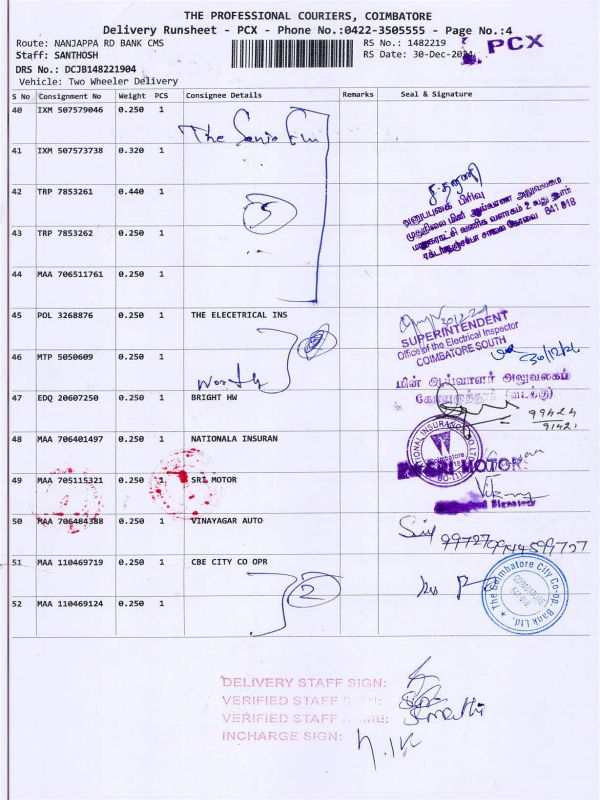 THE PROFESSIONAL COURIERS, COIMBATORE
Delivery Runsheet - PCX - Phone No.:0422-3505555 - Page No.:4
Route: NANJAPPA RD BANK CMS
RS No.: 1482219
PCX
Staff: SANTHOSH
RS Date: 30-Dec-2024
DRS No.: DCJB148221904
Vehicle: Two Wheeler Delivery
S No Consignment No Weight PCS Consignee Details Remarks Seal & Signature
40 IXM 507579046 0.250 1
The
41 IXM 507573738 0.320 1
42 TRP 7853261 0.440 1
5
அனுபபுகை பிரிவு
43 TRP 7853262 0.250 1
641 018
44 MAA 706511761 0.250 1
45 POL 3268876 0.250 1 THE ELECETRICAL INS
SUPERINTENDENT
Office of the Electrical Inspector
COIMBATORE SOUTH
46 MTP 5050609 0.250 1
North
30/12/24
மின் ஆய்வாளர் அலுவலகம்
47 EDQ 20607250 0.250 1 BRIGHT HW
99424
91421
48 MAA 706401497 0.250 1 NATIONALA INSURAN
SRI MOTORS
49 MAA 705115321 0.250 1 SRI MOTOR
50 MAA 706484388 0.250 1 VINAYAGAR AUTO
51 MAA 110469719 0.250 1 CBE CITY CO OPR
2
The Coimbatore City Co-op. Bank Ltd.
COIMBATORE
52 MAA 110469124 0.250 1
DELIVERY STAFF SIGN:
VERIFIED STAFF SIGN:
VERIFIED STAFF NAME:
INCHARGE SIGN: